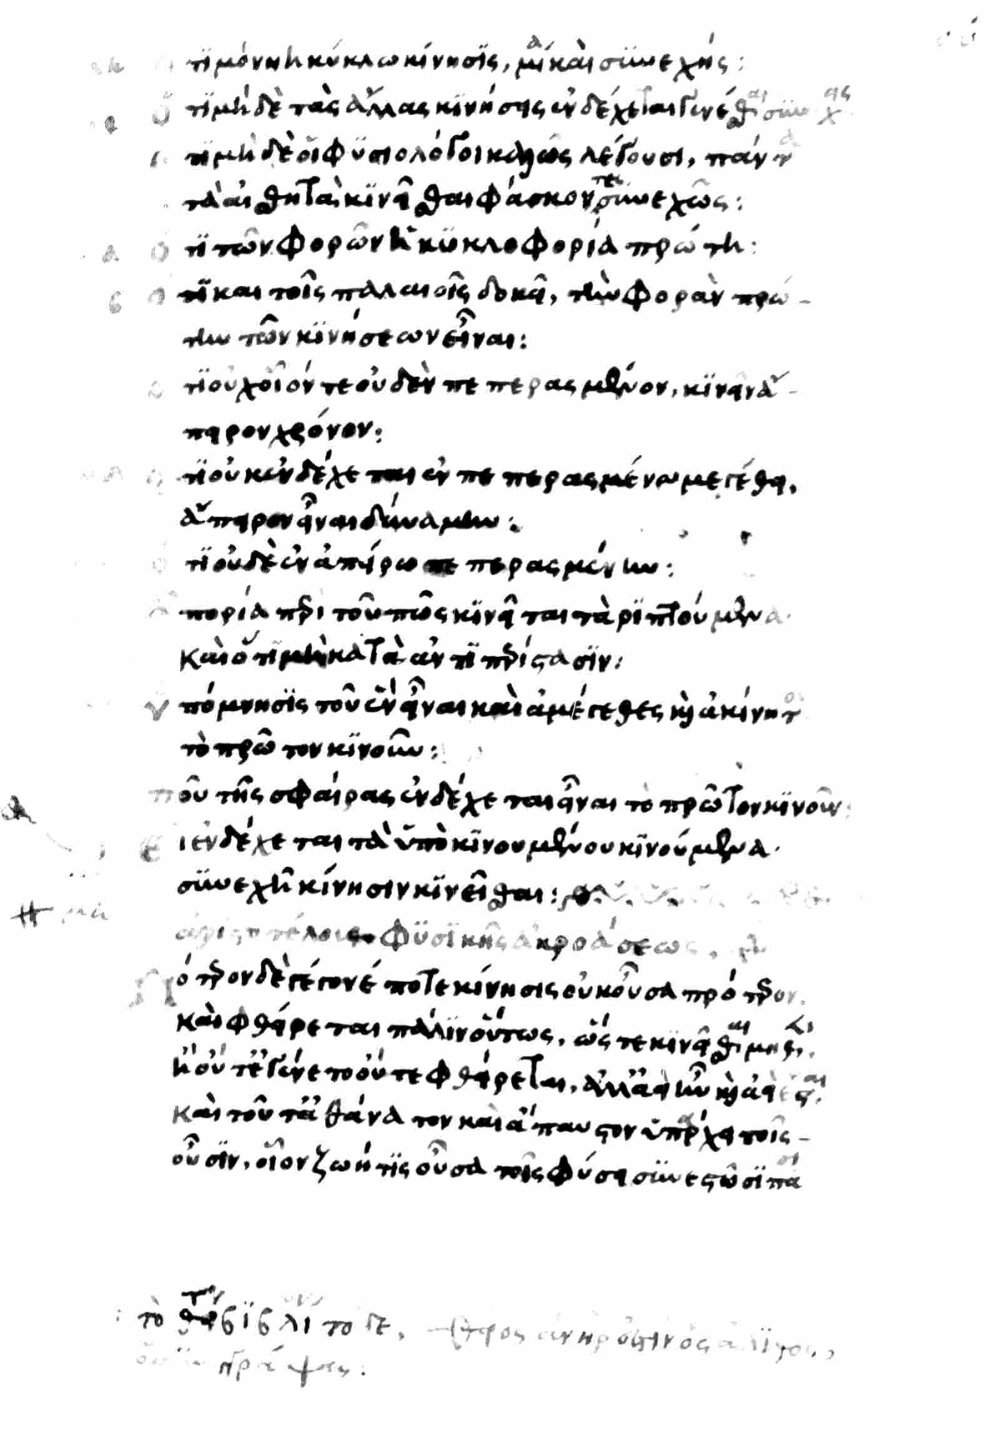 ὅτι μόνη ἡ κύκλω κίνησις, μία καὶ συνεχής:
ὅτι μὴ δὲ τὰς ἄλλας κινήσεις ἐνδέχεται γενέσθαι συνεχεῖς
ὅτι μὴ δὲ οἱ φυσιολόγοι καλῶς λέγουσι, πάντα
τὰ αἰσθητὰ κινεῖσθαι φάσκοντες συνεχῶς:
ὅτι τῶν φορῶν ἡ κυκλοφορία πρώτη:
ὅτι και τοῖς παλαιοῖς δοκεῖ, τὴν φορὰν πρώ-
την τῶν κινήσεων εἶναι:
ὅτι οὐχ οἷόν τε οὐδὲν πεπερασμένον, κινεῖν ἄ-
πειρον χρόνον:
ὅτι οὐκ ἐνδέχεται ἐν πεπερασμένω μεγέθει,
ἄπειρον εἶναι δύναμιν:
ὅτι οὐδὲ ἐν ἀπείρω πεπερασμένην:
ἀπορία περὶ τοῦ πῶς κινεῖται τὰ ριπτούμενα
καὶ ὅτι μὴ κατὰ ἀντιπερίστασιν:
ὑπόμνησις τοῦ ἓν εἶναι καὶ ἀμέγεθες καὶ ἀκίνητον
τὸ πρῶτον κινοῦν:
ποῦ τῆς σφαίρας ἐνδέχεται εἶναι τὸ πρῶτον κινοῦν:
εἰ ἐνδέχεται τὰ ὑπὸ κινουμένου κινούμενα
συνεχῆ κίνησιν κινεῖσθαι:
ἀριστοτέλους φυσικῆς ἀκροάσεως,
Πότερον δὲ γέγονέ ποτε κίνησις οὐκ οὖσα πρότερον,
καὶ φθείρεται πάλιν οὕτως, ὥστε κινεῖσθαι μηδέν,
ἢ οὔτ' ἐγένετο οὔτε φθείρεται, ἀλλ' ἀεὶ ἦν καὶ ἀεὶ ἔσται,
καὶ τοῦτ' ἀθάνατον καὶ ἄπαυστον ὑπάρχει τοῖς
οὖσιν, οἷον ζωή τις οὖσα τοῖς φύσει συνεστῶσι πᾶσι
τὸ βιβλί το δε,